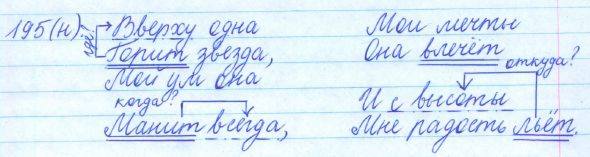 195(н)
где?
Вверху одна
Горит звезда,
Мой ум она
когда?
Манит всегда,
Мои мечты
Она влечёт
откуда?
И с высоты
Мне радость льёт.